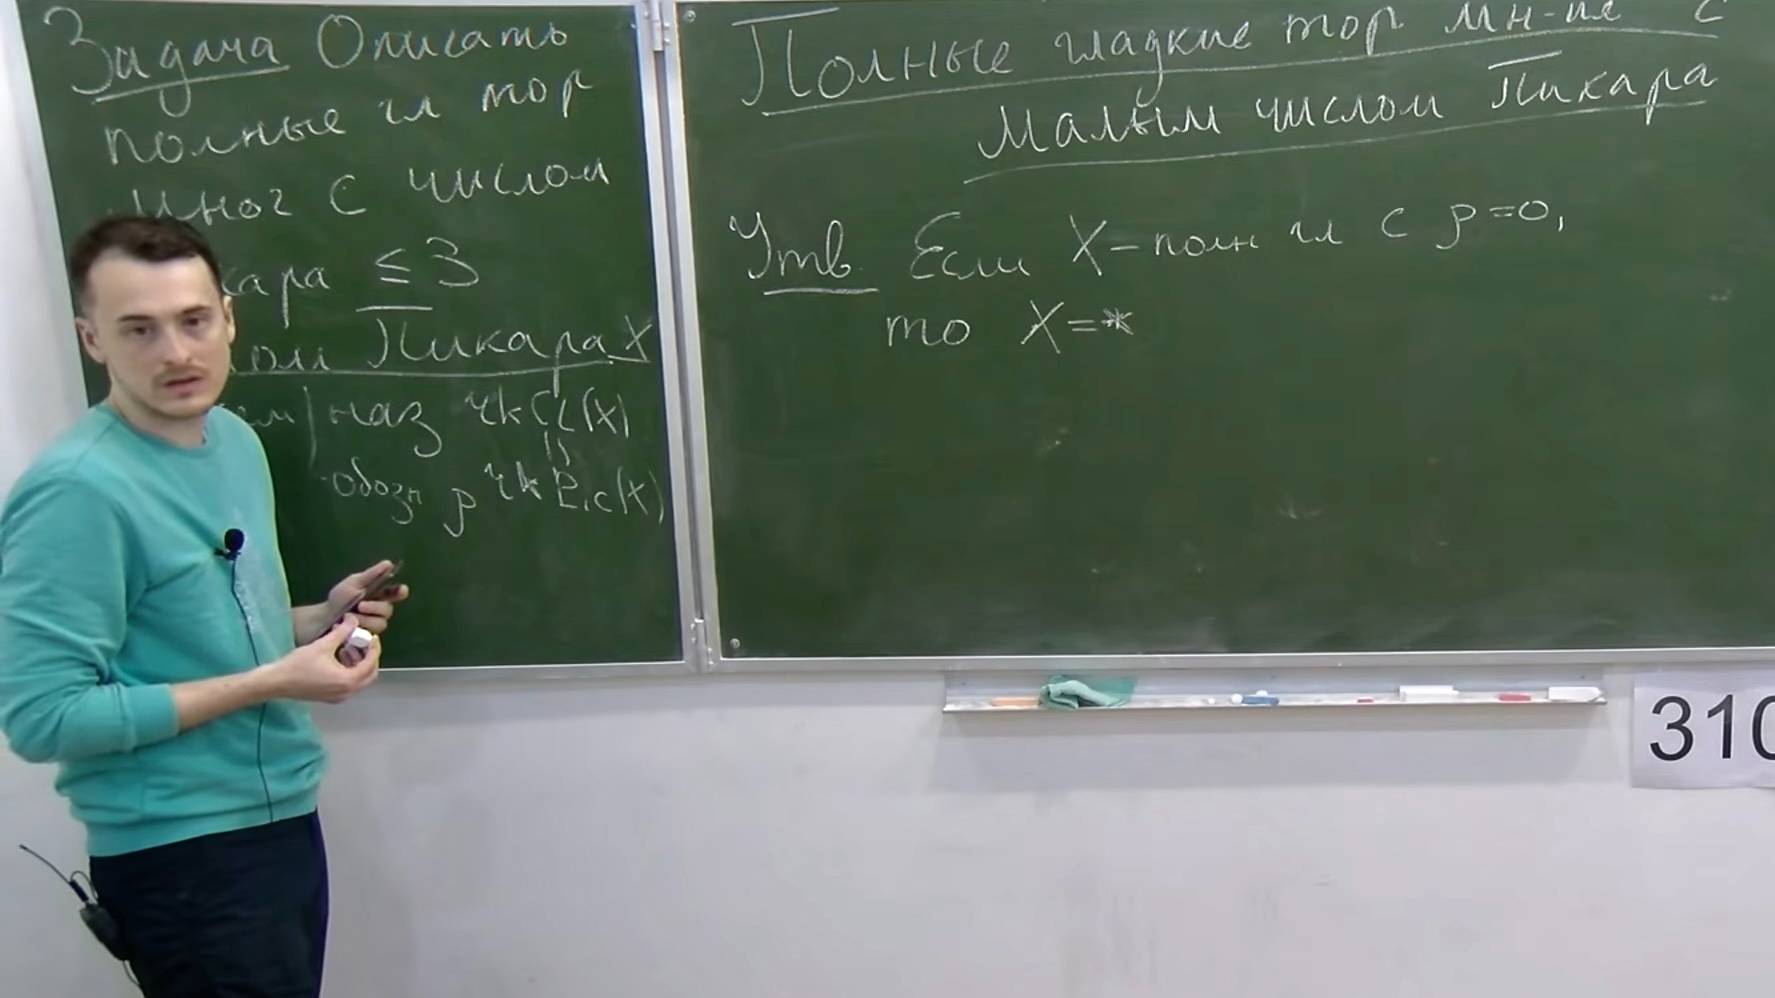 Задача Описать
полные гл тор
мног с числом
кара ≤3
ом Пикара X
наз rk Cl(X)
обозн ρ rk Pic(X)
Полные гладкие тор мн-ия с
малым числом Пикара
Утв. Если X - полн гл с ρ=0,
то X=*
310